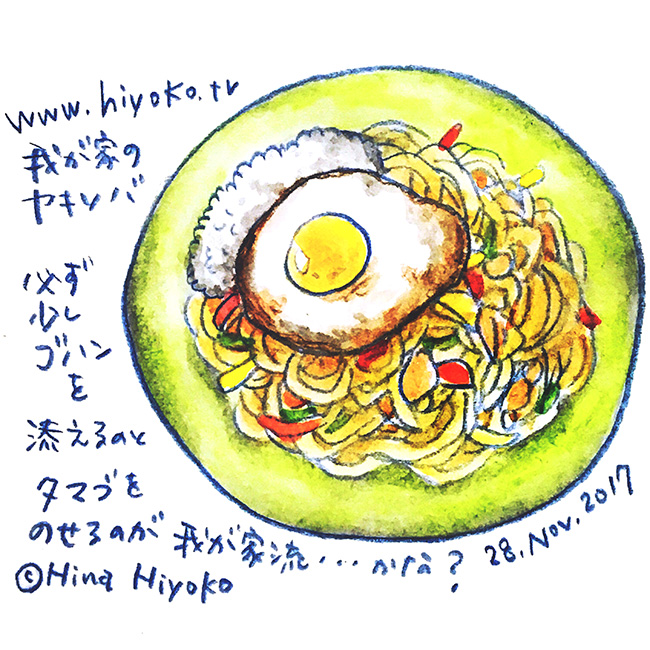 www.hiyoko.tv
我が家の
ヤキソバ
必ず
少し
ゴハン
を
添えるのと
タマゴを
のせるのが 我が家流・・・かな?
28.Nov.2017
©Hina Hiyoko